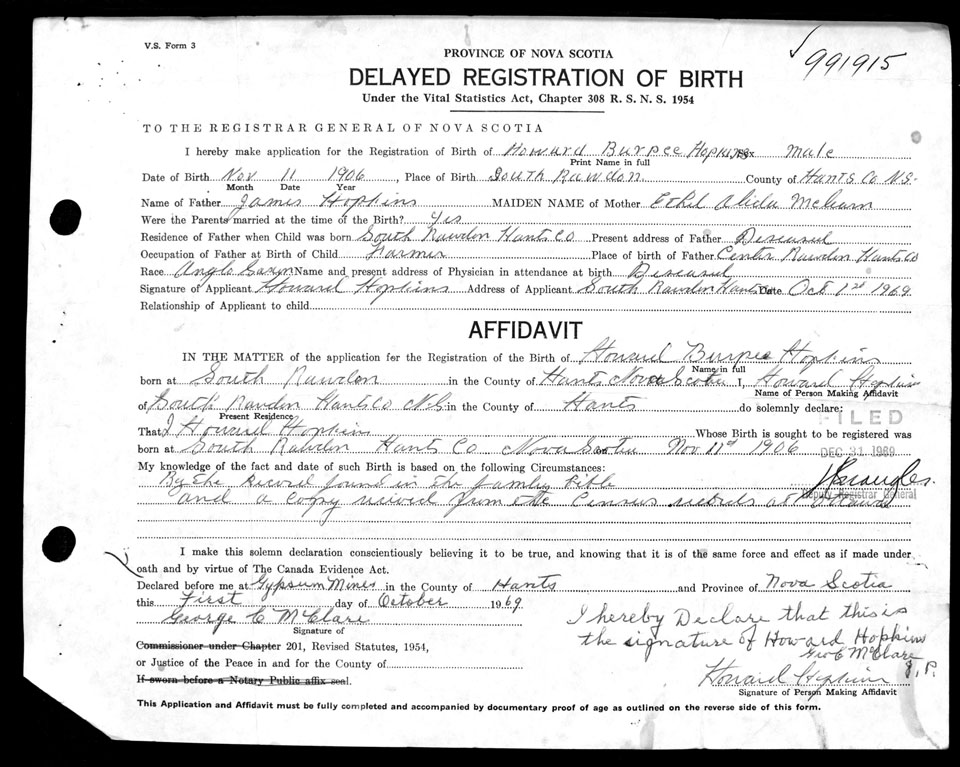 V.S. Form 3
991915
PROVINCE OF NOVA SCOTIA
DELAYED REGISTRATION OF BIRTH
Under the Vital Statistics Act, Chapter 308 R. S. N. S. 1954
TO THE REGISTRAR GENERAL OF NOVA SCOTIA
I hereby make application for the Registration of Birth of Howard Burpee Hopkins Sex Male
Print Name in full
Date of Birth Nov 11 1906, Place of Birth South Rawdon County of Hants Co N.S.
Month Date Year
Name of Father James Hopkins MAIDEN NAME of Mother Ethel Alida
Were the Parents married at the time of the Birth? Yes
Residence of Father when Child was born South Rawdon Hants Co Present address of Father
Occupation of Father at Birth of Child Farmer Place of birth of Father Center Rawdon Hants Co
Race Anglo Saxon Name and present address of Physician in attendance at birth
Signature of Applicant Howard Hopkins Address of Applicant South Rawdon Hants Date Oct 1st 1969
Relationship of Applicant to child
AFFIDAVIT
IN THE MATTER of the application for the Registration of the Birth of Howard Burpee Hopkins
Name in full
born at South Rawdon in the County of Hants Nova Scotia I, Howard Hopkins
Name of Person Making Affidavit
of South Rawdon Hants Co N.S. in the County of Hants do solemnly declare:
Present Residence
FILED
That I Howard Hopkins Whose Birth is sought to be registered was
born at South Rawdon Hants Co Nova Scotia Nov 11 1906
DEC 31 1969
My knowledge of the fact and date of such Birth is based on the following Circumstances:
By the record found in the family Bible
Deputy Registrar General
and a copy from the Census records at
I make this solemn declaration conscientiously believing it to be true, and knowing that it is of the same force and effect as if made under
oath and by virtue of The Canada Evidence Act.
Declared before me at Gypsum Mines in the County of Hants and Province of Nova Scotia
this First day of October 1969
George C McClare
Signature of
Commissioner under Chapter 201, Revised Statutes, 1954,
or Justice of the Peace in and for the County of
If sworn before a Notary Public affix seal.
I hereby Declare that this is
the signature of Howard Hopkins
Geo C McClare
J.P.
Howard Hopkins
Signature of Person Making Affidavit
This Application and Affidavit must be fully completed and accompanied by documentary proof of age as outlined on the reverse side of this form.